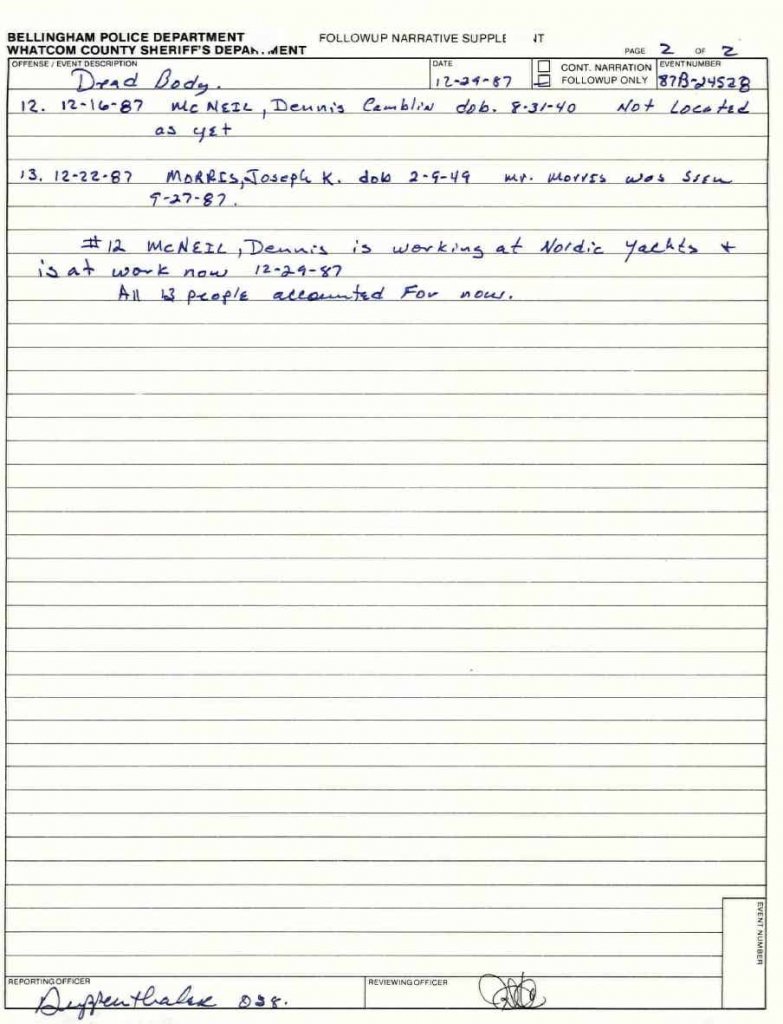 BELLINGHAM POLICE DEPARTMENT
WHATCOM COUNTY SHERIFF'S DEPARTMENT
FOLLOWUP NARRATIVE SUPPLE NT
PAGE 2 OF 2
OFFENSE / EVENT DESCRIPTION
Dead Body.
DATE
12-29-87
CONT. NARRATION
FOLLOWUP ONLY
EVENT NUMBER
87B-24528
12. 12-16-87 McNEIL, Dennis Camblin dob. 8-31-40 Not Located
as yet
13. 12-22-87 MORRIS, Joseph K. dob 2-9-49 Mr. Morris was seen
9-27-87.
#12 McNEIL, Dennis is working at Nordic Yachts +
is at work now 12-29-87
All 13 people accounted For now.
EVENT NUMBER
REPORTING OFFICER
038.
REVIEWING OFFICER